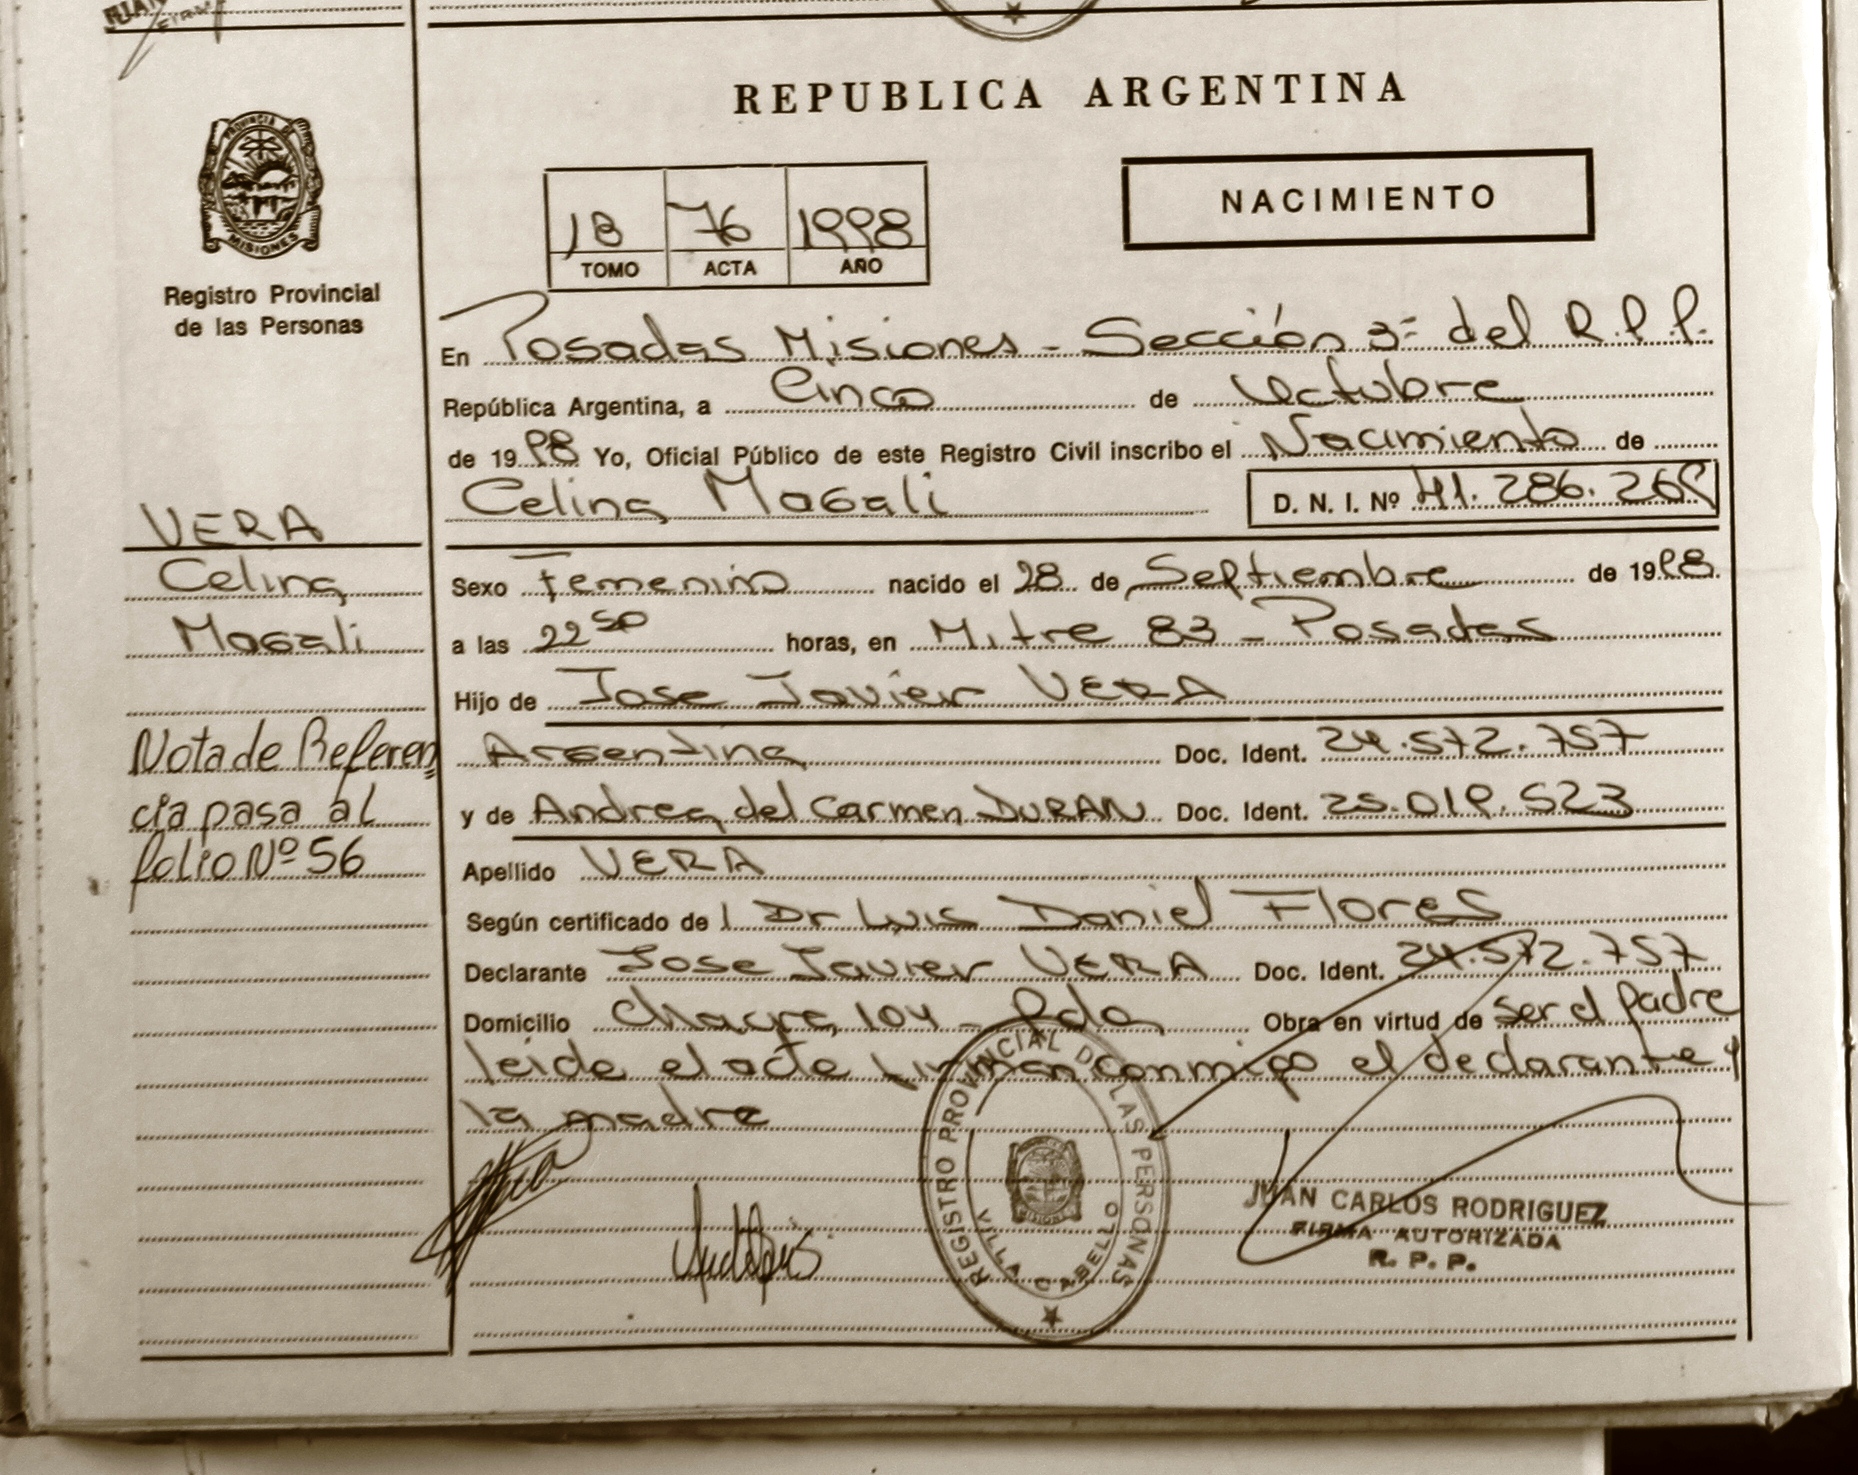 REPUBLICA ARGENTINA
PROVINCIA DE
MISIONES
Registro Provincial
de las Personas
NACIMIENTO
13 76 1998
TOMO ACTA AÑO
En Posadas Misiones - Sección 3ª del R.P.P.
República Argentina, a Cinco de Octubre
de 1998 Yo, Oficial Público de este Registro Civil inscribo el Nacimiento de
Celina Magali D. N. I. Nº 41.286.269
VERA
Celina
Magali
Nota de Referen
cia pasa al
folio Nº 56
Sexo Femenino nacido el 28 de Septiembre de 1998
a las 22 50 horas, en Mitre 83 - Posadas
Hijo de Jose Javier VERA
Argentina Doc. Ident. 24.572.757
y de Andrea del Carmen DURAN Doc. Ident. 25.019.523
Apellido VERA
Según certificado de l Dr Luis Daniel Flores
Declarante Jose Javier VERA Doc. Ident. 24.572.757
Domicilio Chacra 104 - Pdas Obra en virtud de ser el padre
leida el acta firman conmigo el declarante y
la madre
REGISTRO PROVINCIAL DE LAS PERSONAS
VILLA CABELLO
JUAN CARLOS RODRIGUEZ
FIRMA AUTORIZADA
R. P. P.